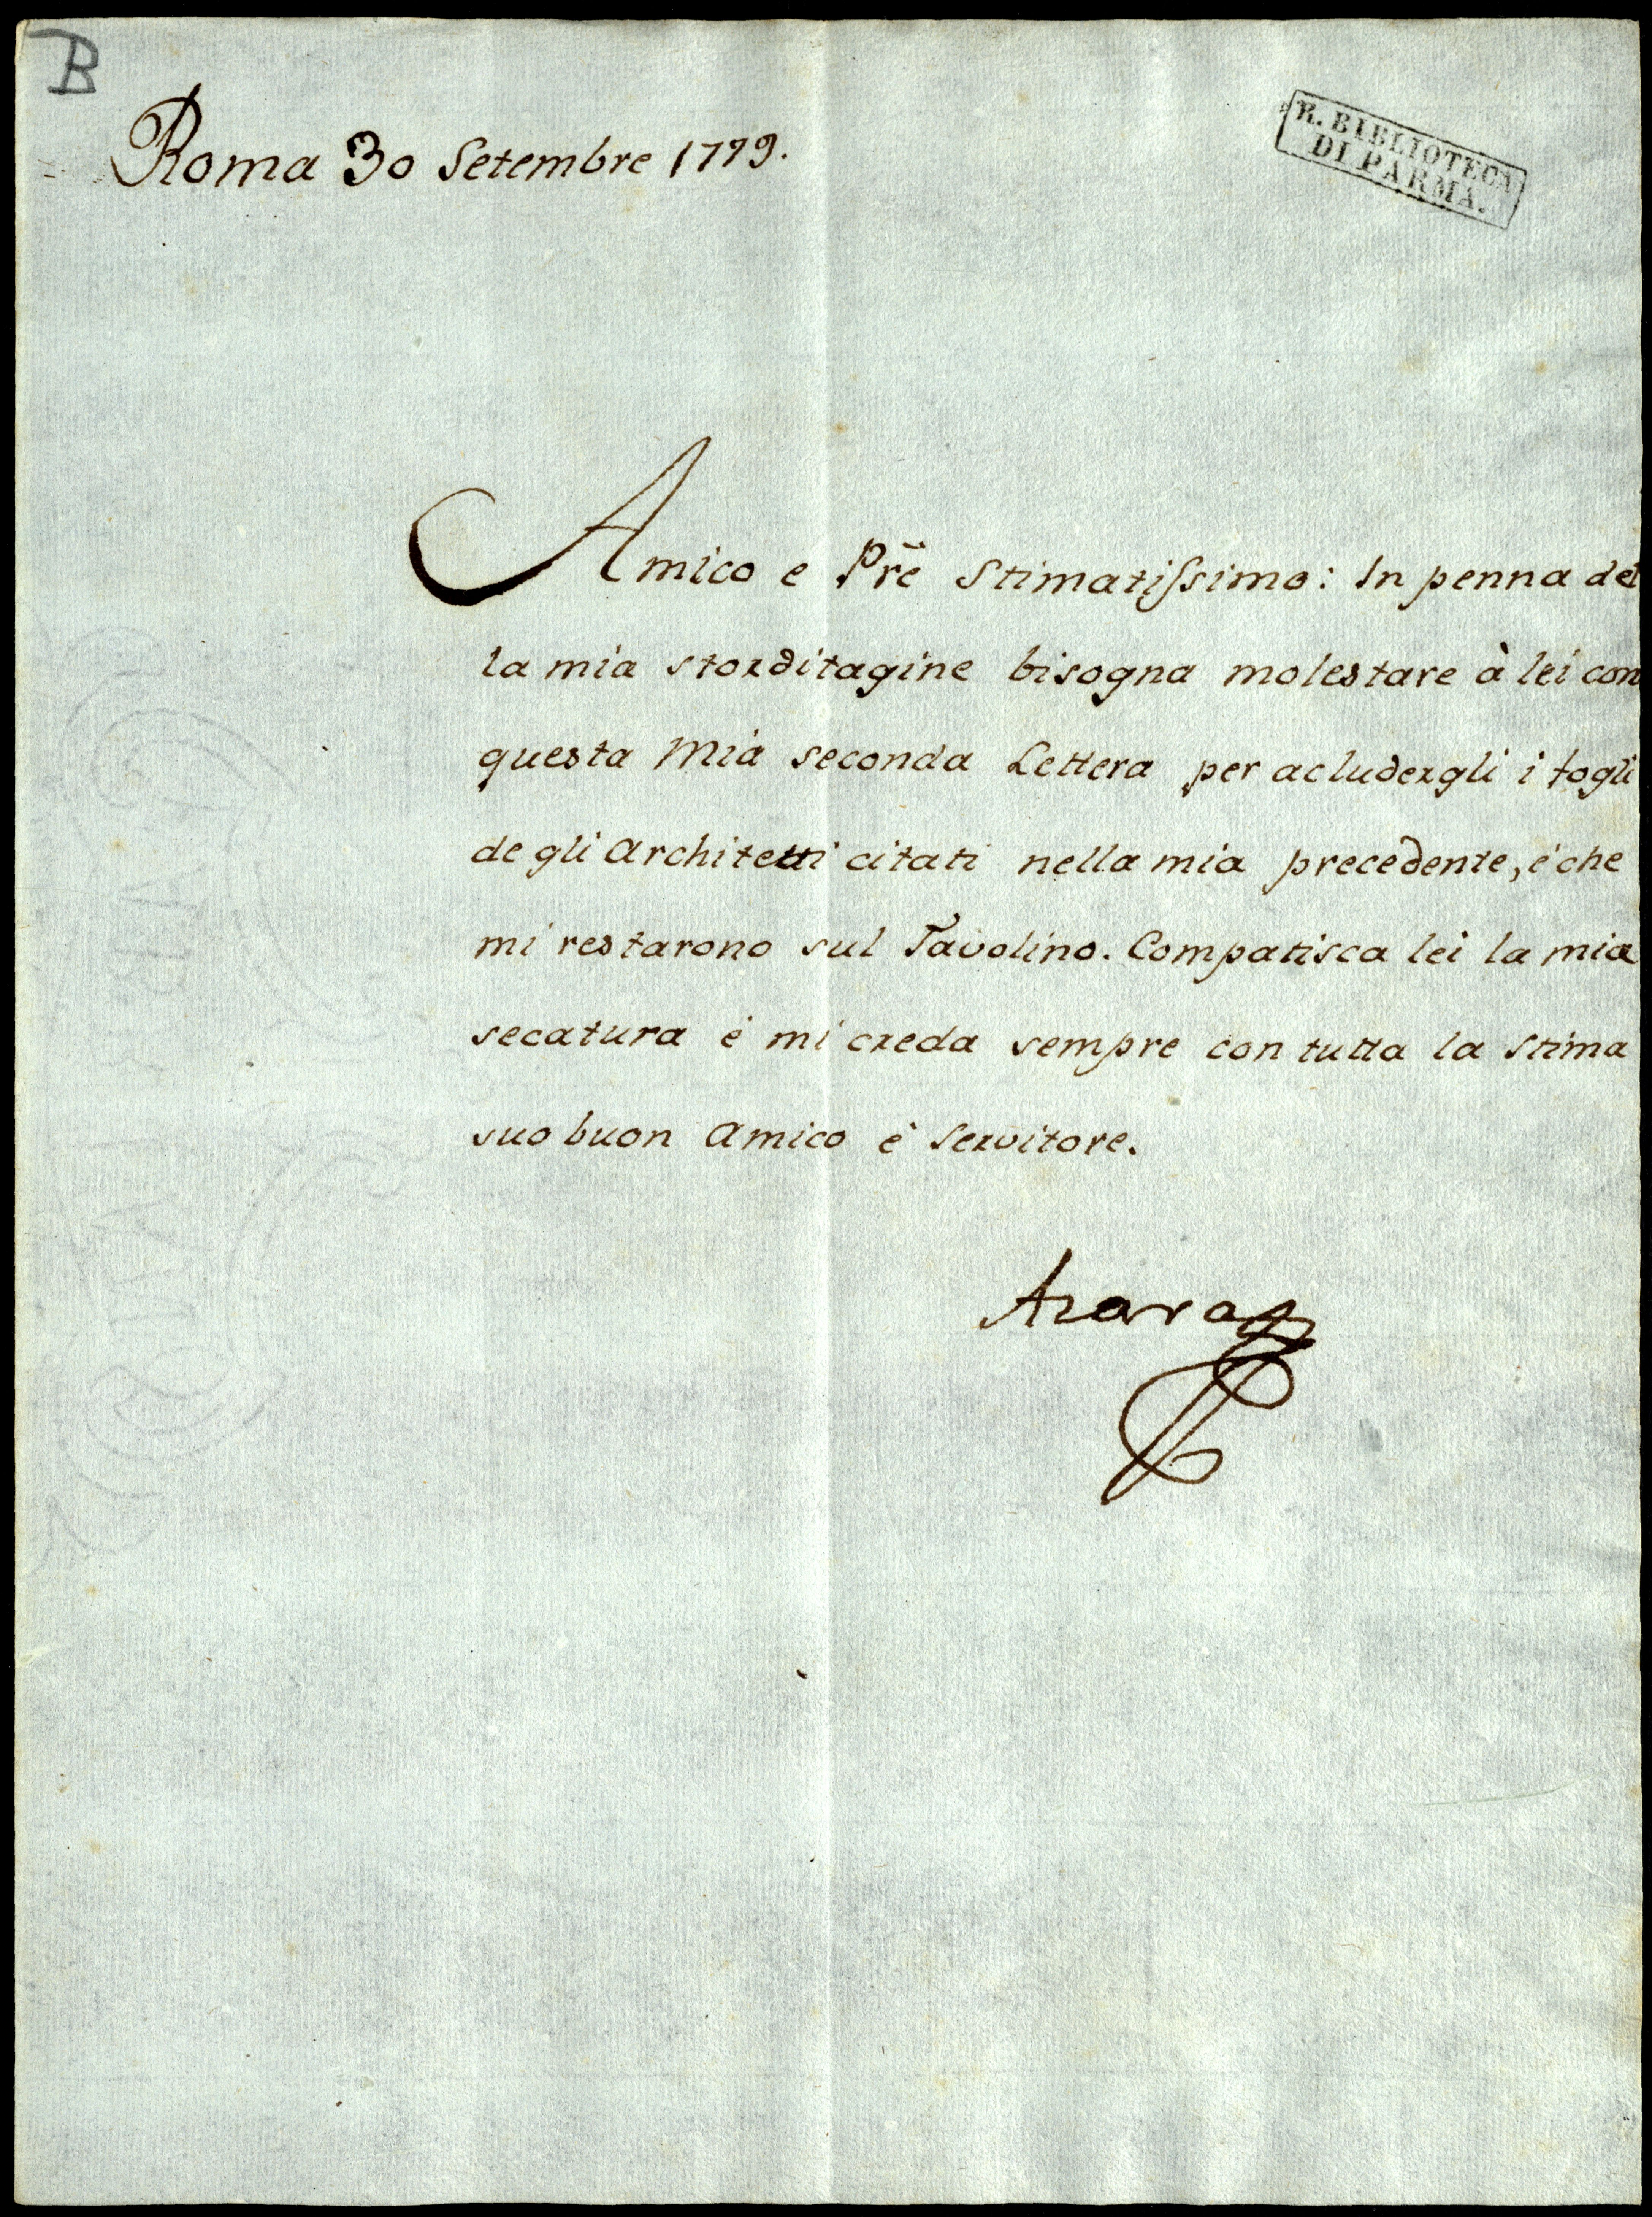 B
Roma 30 Setembre 1779.
R. BIBLIOTECA
DI PARMA.
Amico e Pr̃e Stimatiſsimo: In penna del
la mia storditagine bisogna molestare à lei con
questa Mia seconda Lettera per acludergli i fogli
degli Architetti citati nella mia precedente, è che
mi restarono sul Tavolino. Compatisca lei la mia
secatura è mi creda sempre con tutta la stima
suo buon Amico è Servitore.
Azara